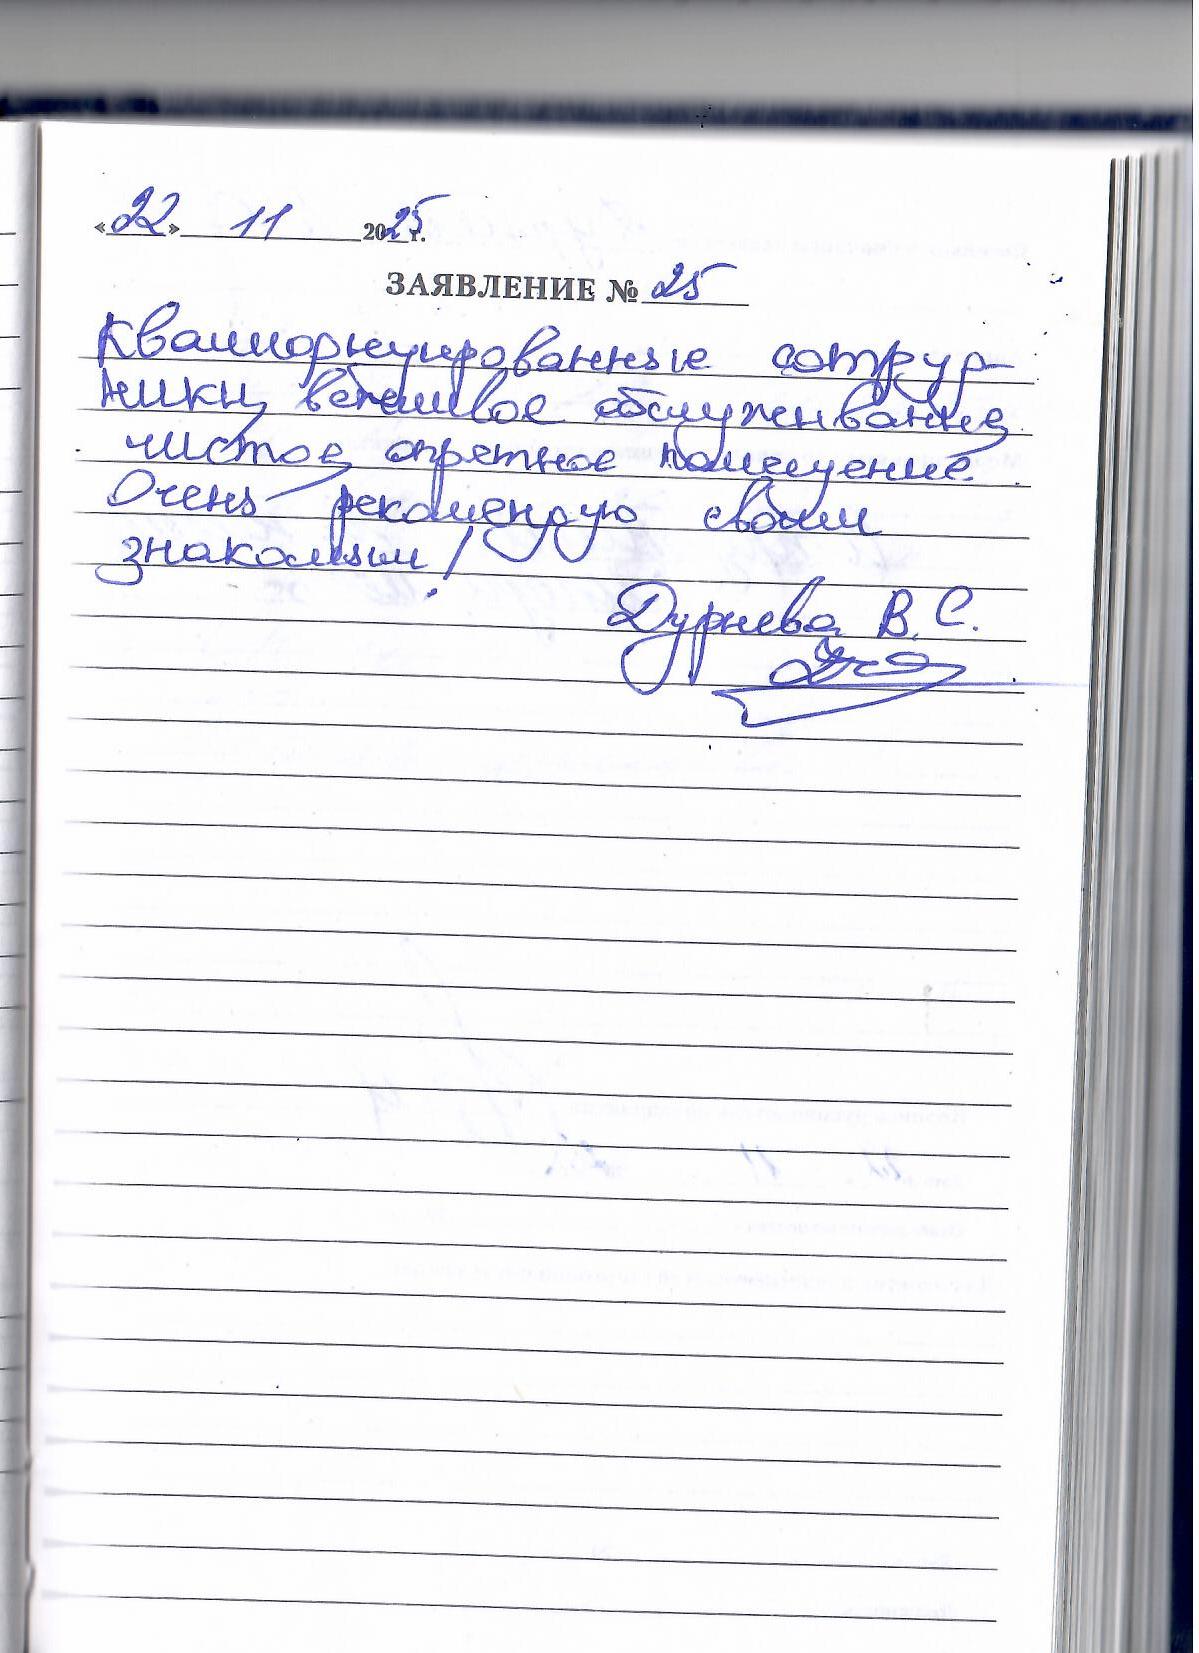 «22» 11 2025 г.
ЗАЯВЛЕНИЕ № 25
Квалифицированные сотруд-
ники, вежливое обслуживание,
чистое, опрятное помещение.
Очень рекомендую своим
знакомым!
Дурнева В. С.